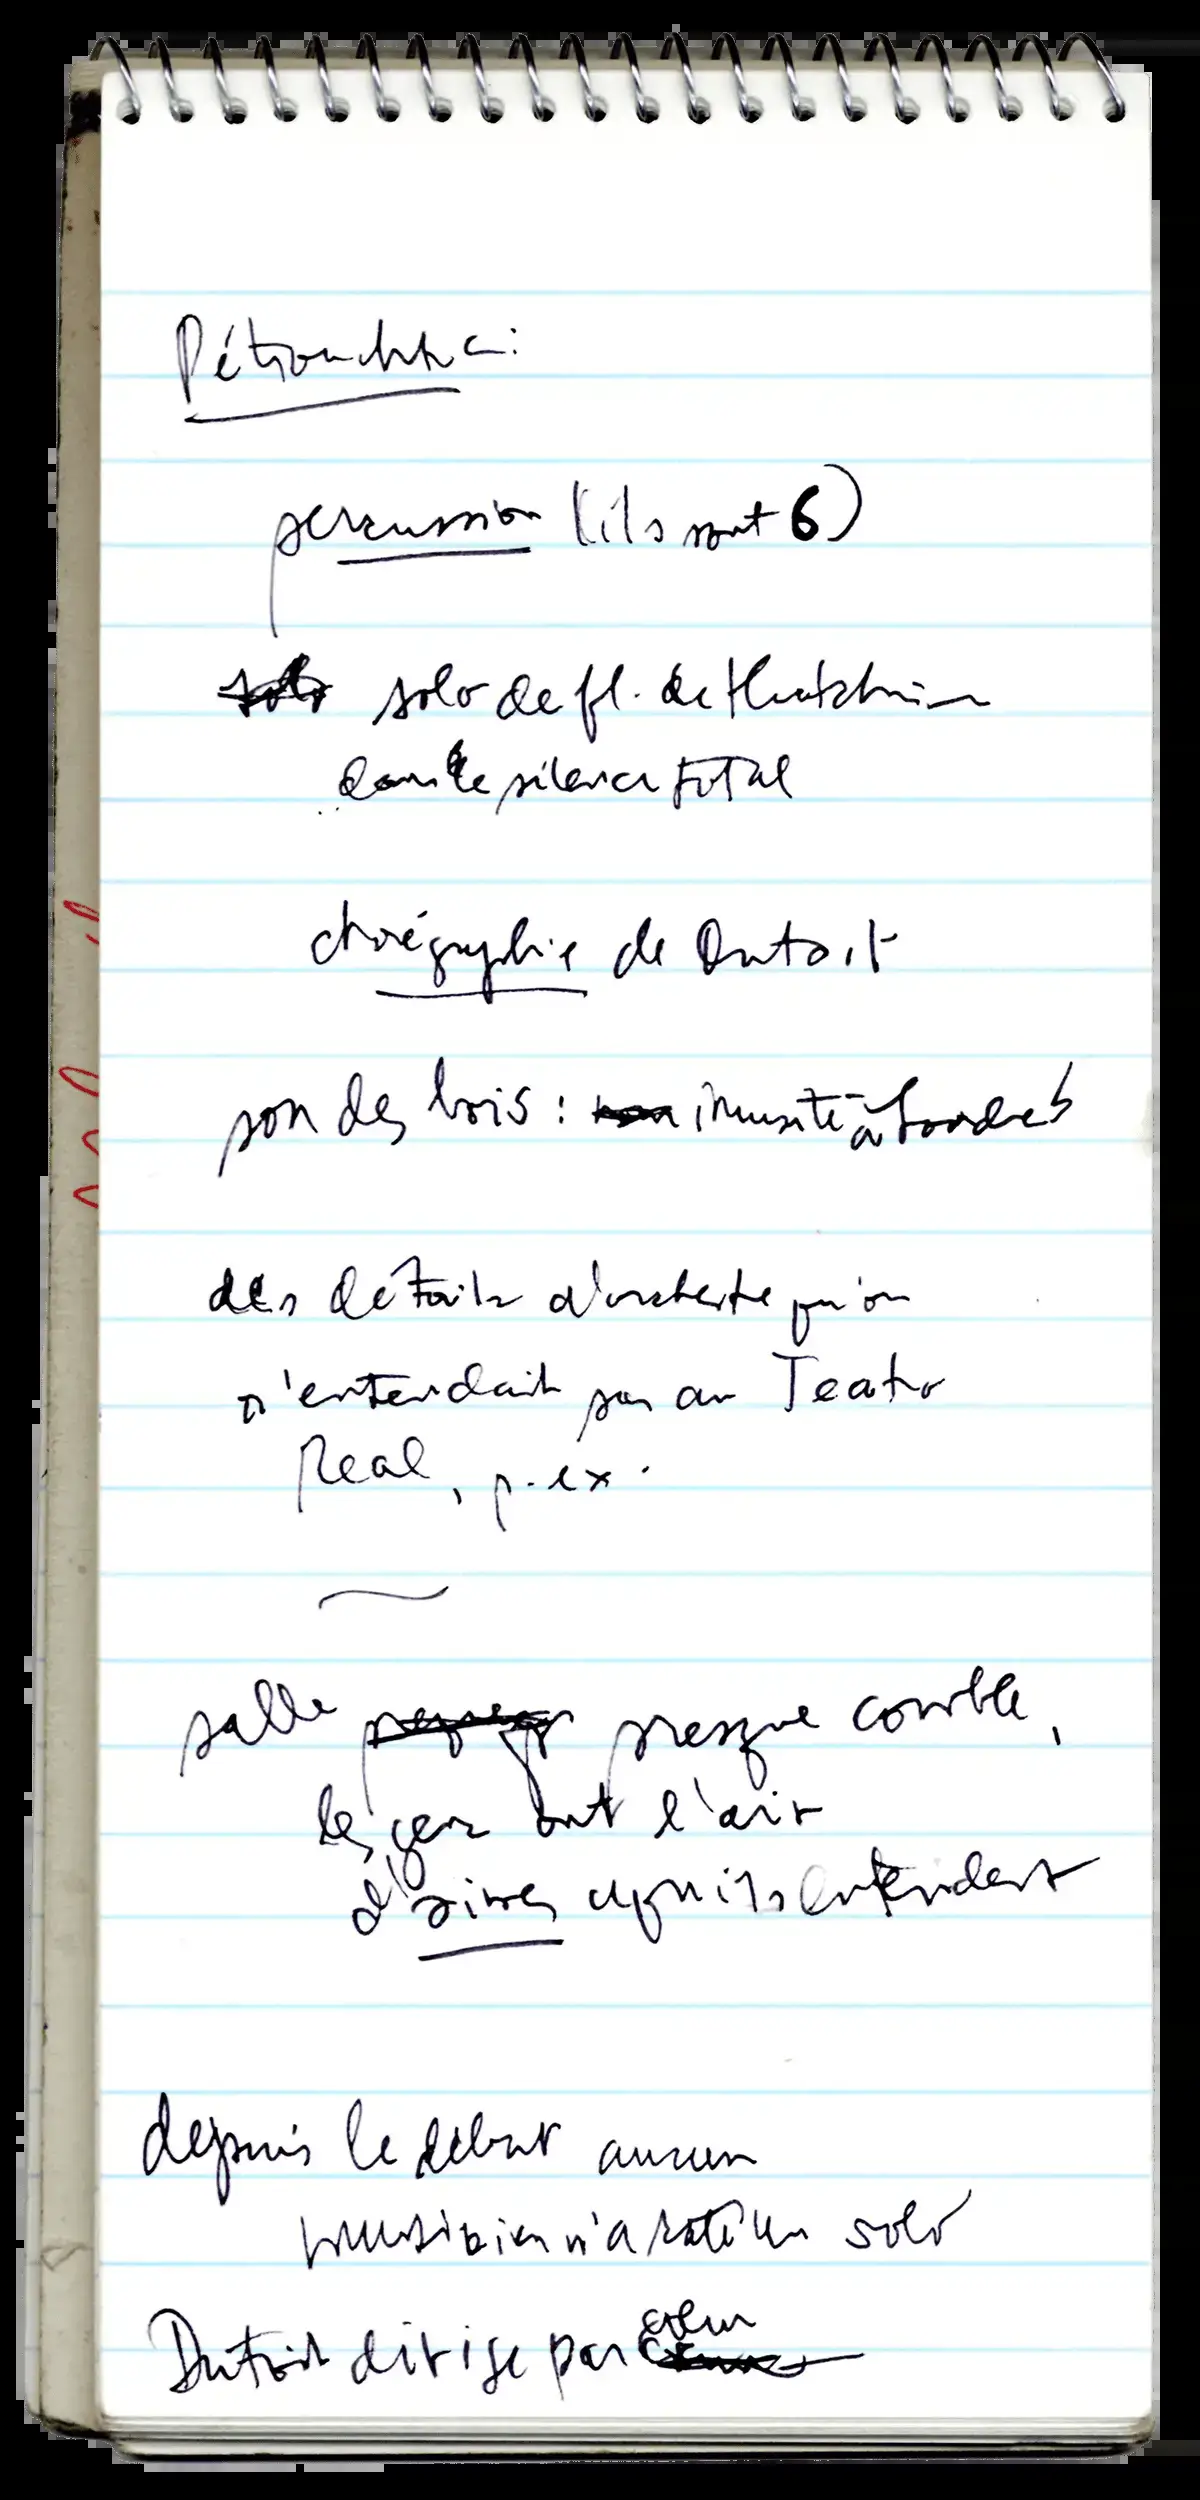 Pétrouchka :
percussion (ils sont 6)
solo solo de fl. de Hutchins
dans le silence total
chorégraphie de Dutoit
son des bois : inusité à Londres
des détails d'orchestre qu'on
n'entendait pas au Teatro
Real, p. ex.
salle presque comble,
les gens ont l'air
d'aimer ce qu'ils entendent
depuis le début aucun
musicien n'a raté un solo
Dutoit dirige par cœur